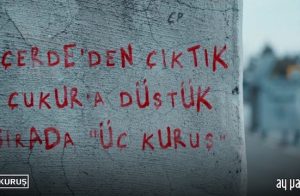 CP
ÇERDE'DEN ÇIKTIK
ÇUKUR'A DÜŞTÜK
SIRADA "ÜÇ KURUŞ"
KURUŞ
ay ya